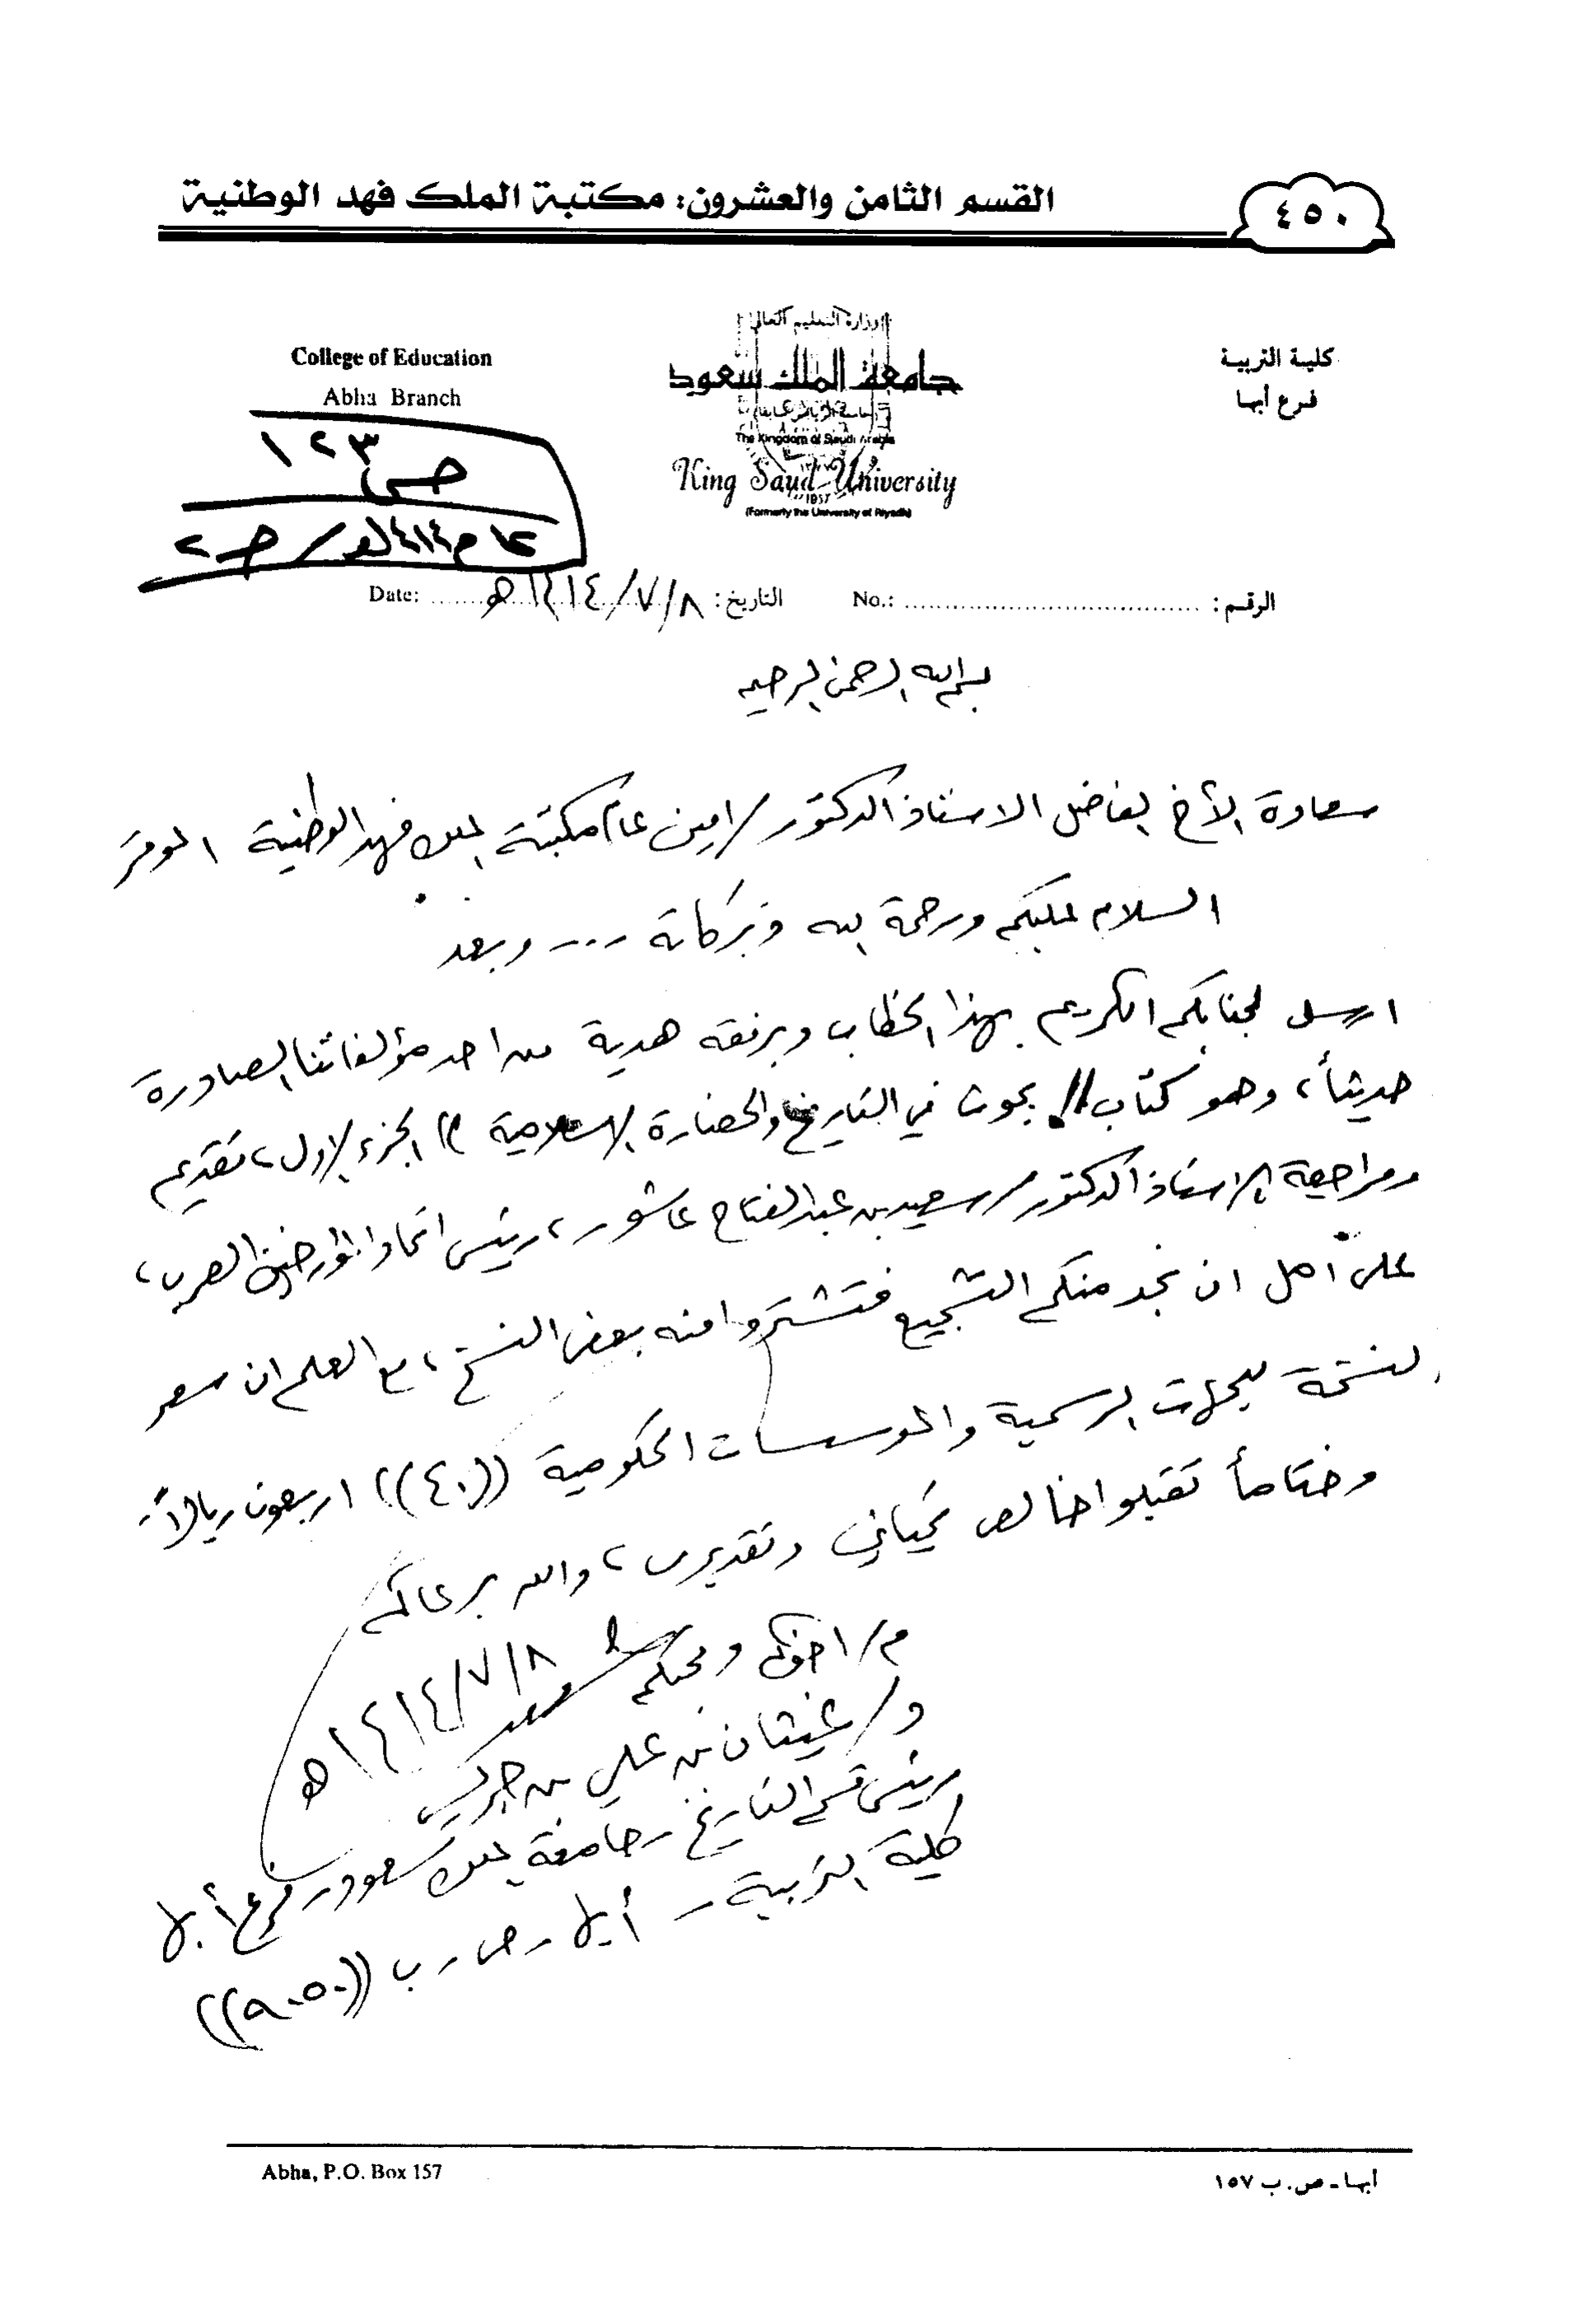 القسم الثامن والعشرون: مكتبة الملك فهد الوطنية
٤٥٠
كلية التربية
فرع أبها
وزارة التعليم العالي
جامعة الملك سعود
The Kingdom of Saudi Arabia
King Saud University
1957
(Formerly the University of Riyadh)
College of Education
Abha Branch
ص ١٢٣
الرقم: No.:
التاريخ: ٨/٧/١٤١٤ هـ Date:
بسم الله الرحمن الرحيم
سعادة الأخ الفاضل الاستاذ الدكتور/ امين عام مكتبة الملك فهد الوطنية الموقر
السلام عليكم ورحمة الله وبركاته ... وبعد
ارسل لجنابكم الكريم بهذا الخطاب وبرفقه هدية من احد مؤلفاتنا الصادرة
حديثاً، وهو كتاب // بحوث في التاريخ والحضارة الاسلامية )) الجزء الاول، تقديم
ومراجعة الاستاذ الدكتور/ سعيد بن عبدالفتاح عاشور، رئيس اتحاد المؤرخين العرب،
على أمل ان نجد منكم التشجيع فتشتروا منه بعض النسخ، مع العلم ان سعر
النسخة للجهات الرسمية والمؤسسات الحكومية ((٤٠)) اربعون ريالاً.
وختاماً تقبلوا خالص تحياتي وتقديري، والله يرعاكم
م/ اخوكم ومحبكم
٨/٧/١٤١٤ هـ
د/ غيثان بن علي بن جريس
رئيس قسم التاريخ - جامعة الملك سعود - فرع أبها
كلية التربية - أبها - ص.ب ((٩٠٥٠))
Abha, P.O. Box 157
أبها - ص. ب ١٥٧